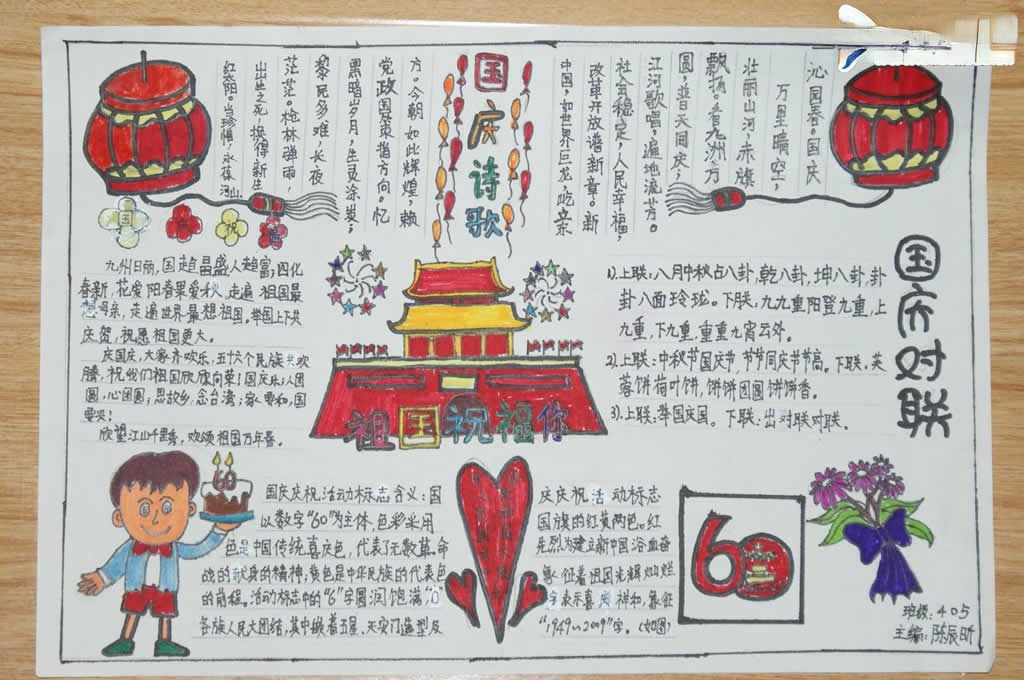 国庆诗歌
沁园春。国庆
万里晴空，
壮丽山河，赤旗
飘扬。看九洲方
圆，普天同庆，
江河歌唱，遍地流芳。
社会稳定，人民幸福，
改革开放谱新章。新
中国，如世界巨龙，屹立东
方。今朝如此辉煌，赖
党政国策指方向。忆
黑暗岁月，生灵涂炭；
黎民多难，长夜
茫茫。枪林弹雨，
出生之死，换得新生
红太阳。当珍惜，永葆河山
国
祝
九州日丽，国趋昌盛人趋富；四化
春新，花爱阳春果爱秋。走遍祖国最
想母亲，走遍世界最想祖国。举国上下共
庆贺，祝愿祖国更大。
庆国庆，大家齐欢乐，五十六个民族共欢
腾，祝我们祖国欣欣向荣！国庆乐；人团
圆，心团圆；思故乡，念台湾；家要和，国
要强！
欣望江山千里秀，欢颂祖国万年春。
祖国祝福你
国庆对联
1).上联：八月中秋占八卦，乾八卦，坤八卦，卦
卦八面玲珑。下联，九九重阳登九重，上
九重，下九重，重重九宵云外。
2).上联：中秋节国庆节，节节同庆节节高。下联。芙
蓉饼荷叶饼，饼饼团圆饼饼香。
3).上联：举国庆国。下联：出对联对联。
60
国庆庆祝活动标志含义：国
以数字“60”为主体，色彩采用
色是中国传统喜庆色，代表了无数革命
战的献身的精神；黄色是中华民族的代表色
的前程。活动标志中的“6”字圆润饱满“0”
各族人民大团结，其中嵌着五星、天安门造型及
庆庆祝活动标志
国旗的红黄两色。红
先烈为建立新中国浴血奋
象征着祖国光辉灿烂
字表示喜庆祥和，象征
“1949~2009”字。（如图）
60
班级：405
主编：陈辰昕